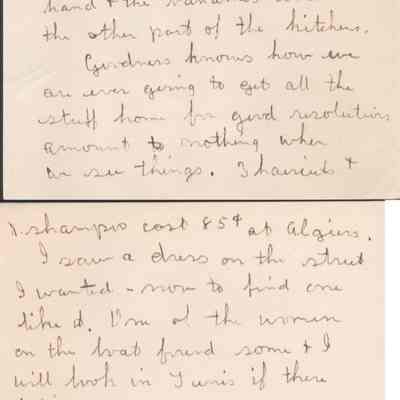 hand & the
the other part of the kitchens.
Goodness knows how we
are ever going to get all the
stuff home for good resolutions
amount to nothing when
we see things. 3 haircuts &
1. shampoo cost 85¢ at Algiers.
I saw a dress on the street
I wanted - now to find one
like it. One of the women
on the boat found some & I
will look in Tunis if there